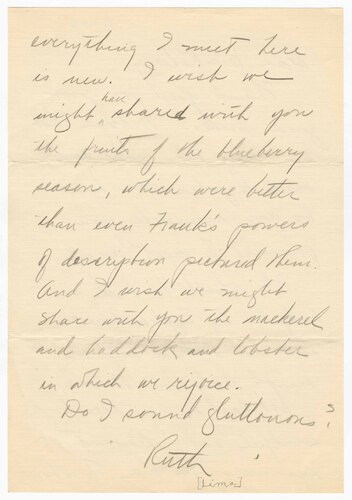 everything I meet here
is new. I wish we
might have shared with you
the fruits of the blueberry
season, which were better
than even Frank's powers
of description pictured them.
And I wish we might
share with you the mackerel
and haddock and lobster
in which we rejoice.
Do I sound gluttonous?
Ruth
[Lima]